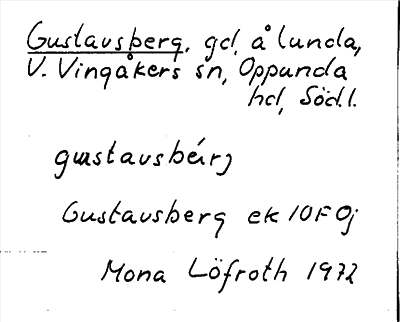 Gustavsberg, gd, å lunda,
V. Vingåkers sn, Oppunda
hd, Södl.
gustavsbérj
Gustavsberg ek 10F0j
Mona Löfroth 1972